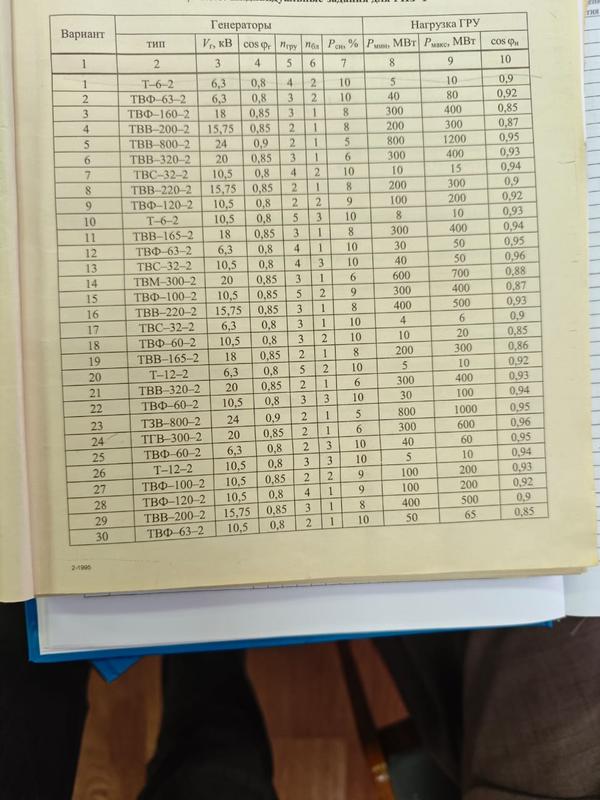 Вариант Генераторы Нагрузка ГРУ
тип Vг, кВ cos φг nгру nбл Pсн, % Pмин, МВт Pмакс, МВт cos φн
1 2 3 4 5 6 7 8 9 10
1 Т–6–2 6,3 0,8 4 2 10 5 10 0,9
2 ТВФ–63–2 6,3 0,8 3 2 10 40 80 0,92
3 ТВФ–160–2 18 0,85 3 1 8 300 400 0,85
4 ТВВ–200–2 15,75 0,85 2 1 8 200 300 0,87
5 ТВВ–800–2 24 0,9 2 1 5 800 1200 0,95
6 ТВВ–320–2 20 0,85 3 1 6 300 400 0,93
7 ТВС–32–2 10,5 0,8 4 2 10 10 15 0,94
8 ТВВ–220–2 15,75 0,85 2 1 8 200 300 0,9
9 ТВФ–120–2 10,5 0,8 2 2 9 100 200 0,92
10 Т–6–2 10,5 0,8 5 3 10 8 10 0,93
11 ТВВ–165–2 18 0,85 3 1 8 300 400 0,94
12 ТВФ–63–2 6,3 0,8 4 1 10 30 50 0,95
13 ТВС–32–2 10,5 0,8 4 3 10 40 50 0,96
14 ТВМ–300–2 20 0,85 3 1 6 600 700 0,88
15 ТВФ–100–2 10,5 0,85 5 2 9 300 400 0,87
16 ТВВ–220–2 15,75 0,85 3 1 8 400 500 0,93
17 ТВС–32–2 6,3 0,8 3 1 10 4 6 0,9
18 ТВФ–60–2 10,5 0,8 3 2 10 10 20 0,85
19 ТВВ–165–2 18 0,85 2 1 8 200 300 0,86
20 Т–12–2 6,3 0,8 5 2 10 5 10 0,92
21 ТВВ–320–2 20 0,85 2 1 6 300 400 0,93
22 ТВФ–60–2 10,5 0,8 3 3 10 30 100 0,94
23 ТЗВ–800–2 24 0,9 2 1 5 800 1000 0,95
24 ТГВ–300–2 20 0,85 2 1 6 300 600 0,96
25 ТВФ–60–2 6,3 0,8 2 3 10 40 60 0,95
26 Т–12–2 10,5 0,8 3 3 10 5 10 0,94
27 ТВФ–100–2 10,5 0,85 2 2 9 100 200 0,93
28 ТВФ–120–2 10,5 0,8 4 1 9 100 200 0,92
29 ТВВ–200–2 15,75 0,85 3 1 8 400 500 0,9
30 ТВФ–63–2 10,5 0,8 2 1 10 50 65 0,85
2-1995